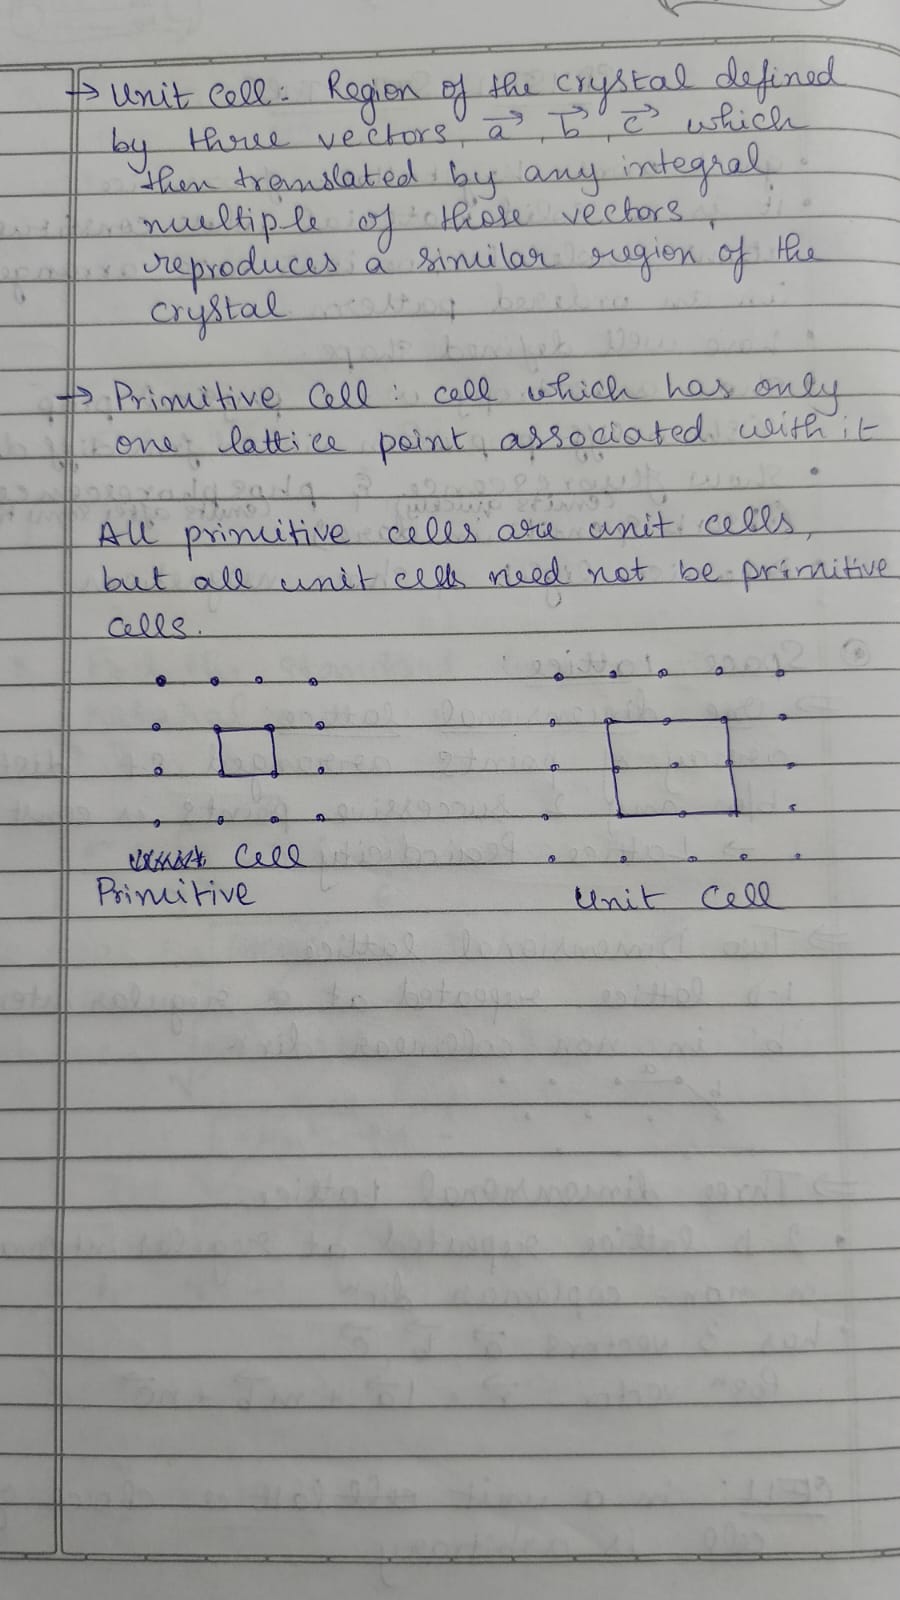 → Unit Cell: Region of the crystal defined
by three vectors, a⃗, b⃗, c⃗ which
then translated by any integral
multiple of those vectors,
reproduces a similar region of the
crystal
→ Primitive Cell: cell which has only
one lattice point associated with it
All primitive cells are unit cells,
but all unit cells need not be primitive
cells.
Cell
Primitive
Unit Cell